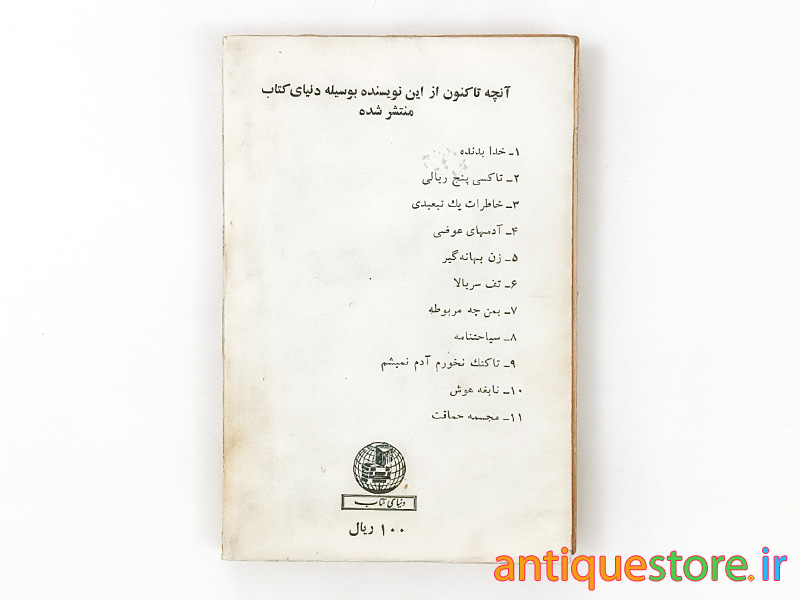 آنچه تاکنون از این نویسنده بوسیله دنیای کتاب
منتشر شده
۱ـ خدا بدنده
۲ـ تاکسی پنج ریالی
۳ـ خاطرات یك تبعیدی
۴ـ آدمهای عوضی
۵ـ زن بهانه‌گیر
۶ـ تف سربالا
۷ـ بمن چه مربوطه
۸ـ سیاحتنامه
۹ـ تاکتك نخورم آدم نمیشم
۱۰ـ نابغه هوش
۱۱ـ مجسمه حماقت
دنیای کتاب
۱۰۰ ریال
antiquestore.ir